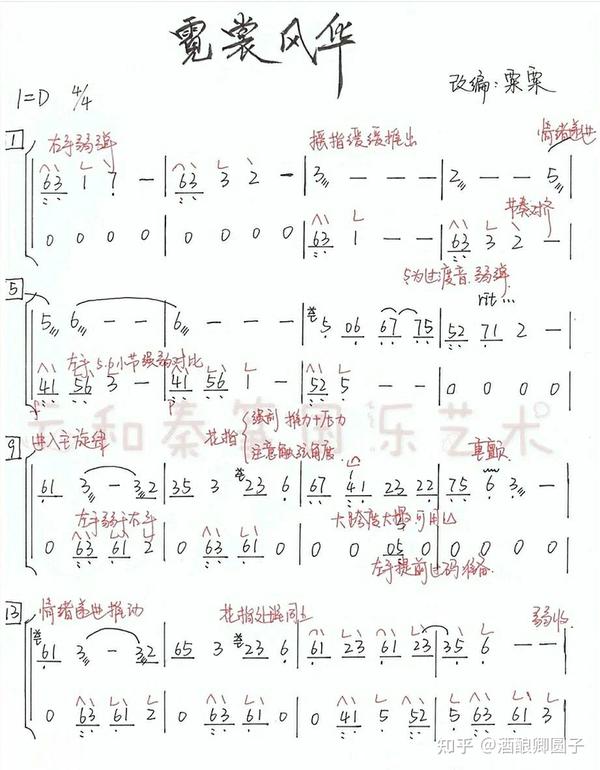 霓裳风华
1=D 4/4 改编:栗栗
1 右手弱弹 摇指缓缓推出 情绪递进
63 1 7 - | 63 3 2 - | 3 - - - | 2 - - 5 |
节奏对齐
0 0 0 0 | 0 0 0 0 | 63 1 - - | 63 3 2 - |
5为过度音.弱弹
rit...
5
5 6 - - | 6 - - - | 5 06 67 75 | 52 71 2 - |
左手5.6小节强弱对比
41 56 3 - | 41 56 1 - | 52 5 - - | 0 0 0 0 |
云和秦筝国乐艺术
9 进入主旋律 花指 强刮 推力+压力 重颤
注意触弦角度
61 3 - 32 | 35 3 23 6 | 67 41 23 22 | 75 6 3 - |
左手弱于右手 大跨度大撮可用
0 63 61 2 | 0 63 61 0 | 0 0 05 0 | 0 0 0 0 |
左手提前过码准备
13 情绪递进推动 花指处理同上 弱收
61 3 - 32 | 65 3 23 6 | 61 23 61 23 | 35 6 - - |
0 63 61 2 | 0 63 61 0 | 0 41 5 52 | 5 63 61 3 |
知乎 @酒酿卿圆子